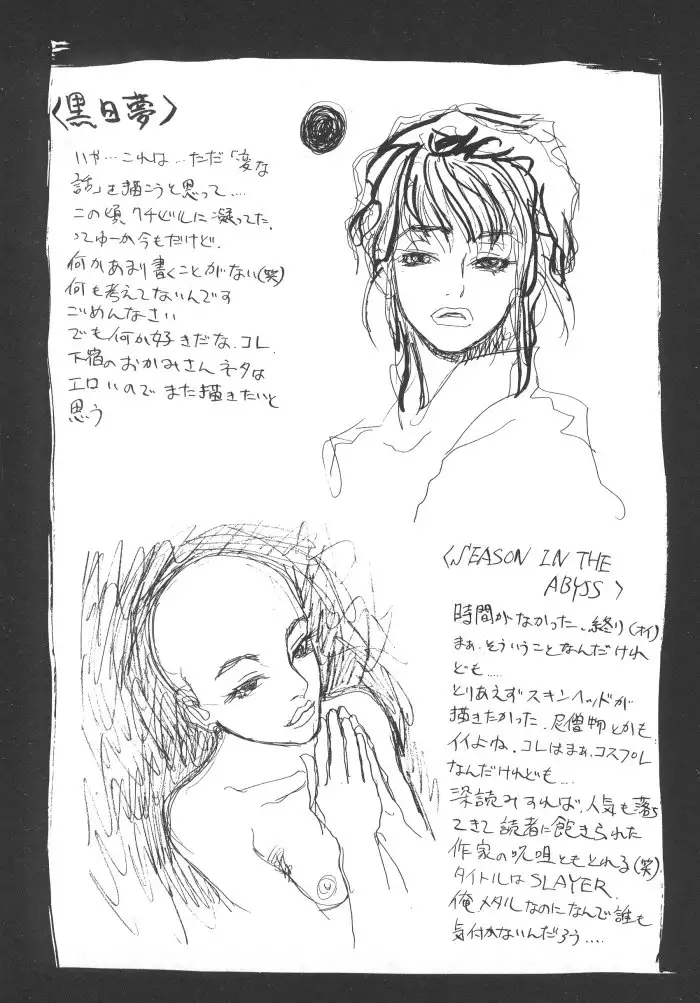 〈黒日夢〉
いや…これは…ただ「変な
話」を描こうと思って……
この頃クチビルに凝ってた.
ってゆーか今もだけど.
何かあまり書くことがない(笑)
何も考えてないんです
ごめんなさい
でも何か好きだな.コレ.
下宿のおかみさんネタは
エロいので また描きたいと
思う
〈SEASON IN THE
ABYSS〉
時間がなかった.終り(オイ)
まぁ.そういうことなんだけれ
ども……
とりあえずスキンヘッドが
描きたかった.尼僧物とかも
イイよね.コレはまぁ.コスプレ
なんだけれども…
深読みすれば.人気も落ち
てきて読者に飽きられた
作家の呪咀ともとれる(笑)
タイトルは SLAYER.
俺メタルなのになんで誰も
気付かないんだろう….